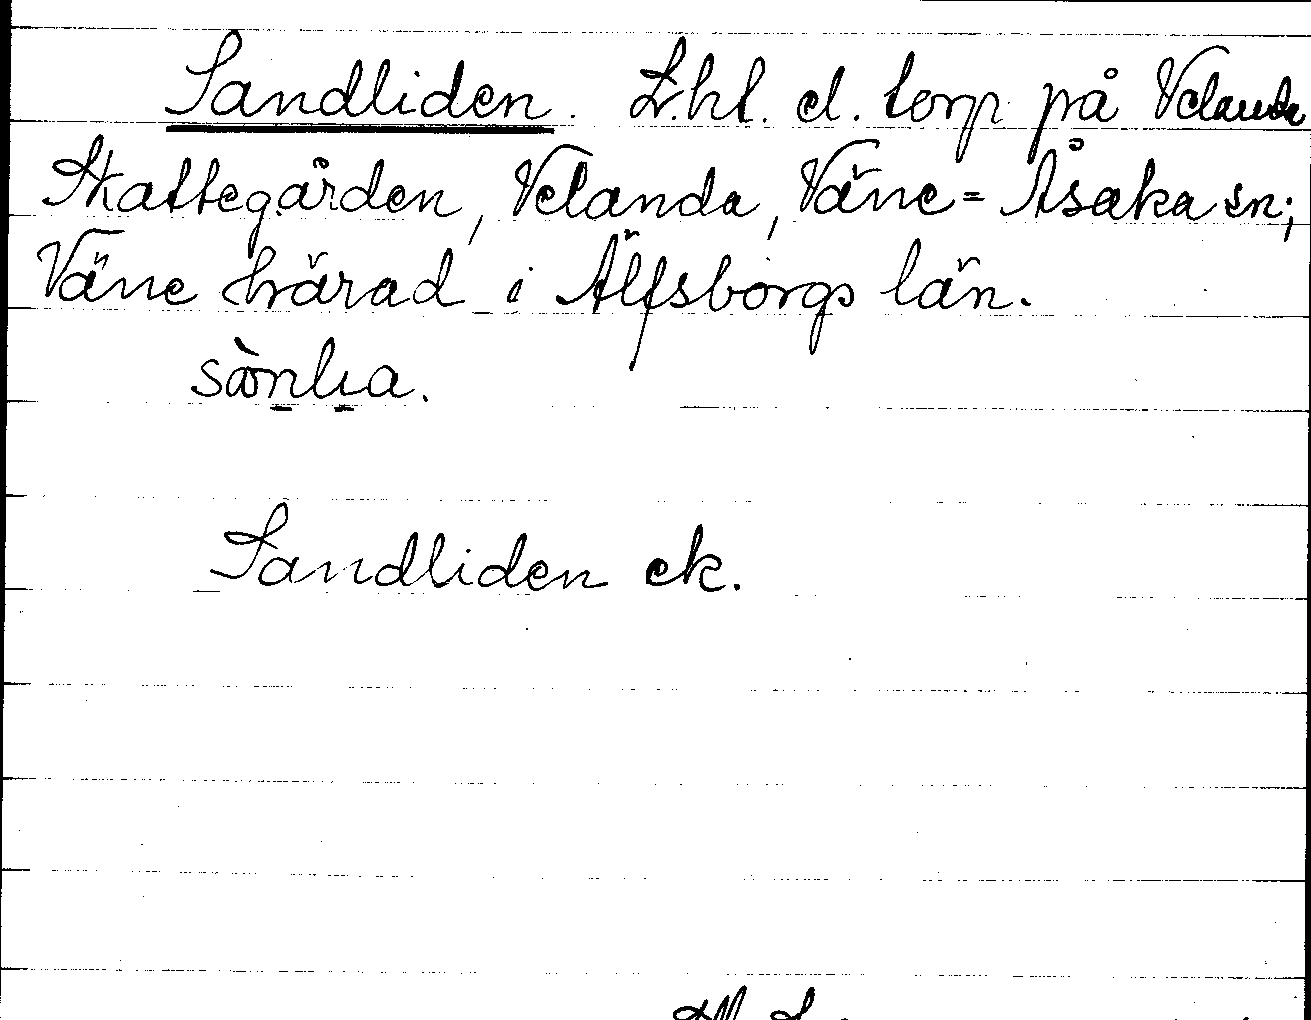 Sandliden. L.hl. el. torp på Velanda
Skattegården, Velanda, Väne=Åsaka sn;
Väne härad i Älfsborgs län.
Sandliden ek.